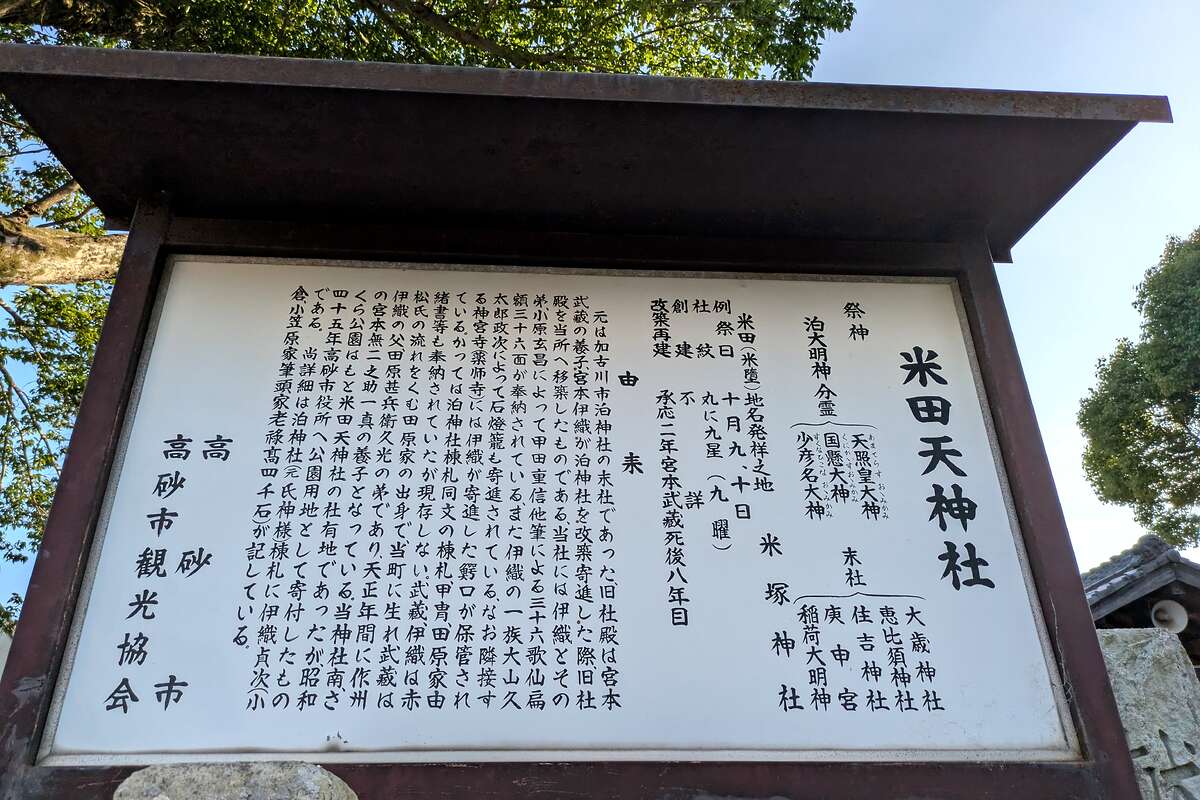 米田天神社
祭神
泊大明神分霊
天照皇大神
あまてらすおゝみかみ
国懸大神
くにかゝすおゝみかみ
少彦名大神
すくなひこなおゝみかみ
末社
大歳神社
恵比須神社
住吉神社
庚申宮
稲荷大明神
米塚神社
米田(米堕)地名発祥之地
例祭日 十月九、十日
社紋 九に九星(九曜)
創建 不詳
改築再建 承応二年宮本武蔵死後八年目
由来
元は加古川市泊神社の末社であった、旧社殿は宮本
武蔵の養子、宮本伊織が泊神社を改築寄進した際、旧社
殿を当所へ移築したものである当社には伊織とその
弟、小原玄昌によって甲田重信他筆による三十六歌仙扁
額三十六面が奉納されているまた伊織の一族大山久
太郎政次によって石燈籠も寄進されている、なお隣接す
る神宮寺(薬師寺)には伊織が寄進した鰐口が保管され
ているかっては泊神社棟札同文の棟札、甲冑、田原家由
緒書等も奉納されていたが現存しない。武蔵、伊織は赤
松氏の流れをくむ田原家の出身で、当町に生れ武蔵は
伊織の父田原甚兵衛久光の弟であり、天正年間に作州
の宮本無二之助一真の養子となっている。当神社南、さ
くら公園はもと米田天神社の社有地であったが昭和
四十五年高砂市役所へ公園用地として寄付したもの
である。 尚詳細は泊神社(元氏神様棟札に伊織貞次(小
倉小笠原家筆頭家老禄高四千石)が記している。
高砂市
高砂市観光協会